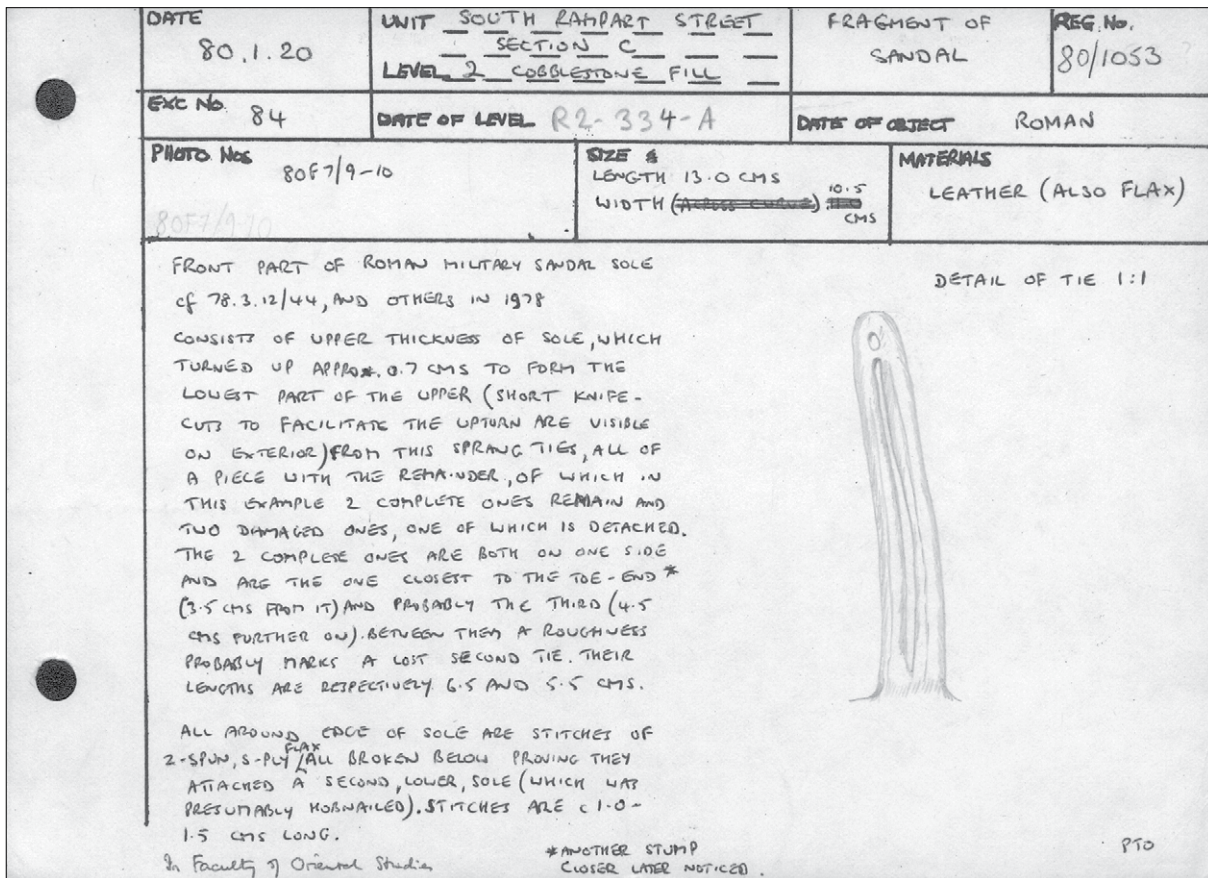 DATE
80.1.20
UNIT SOUTH RAMPART STREET
SECTION C
LEVEL 2 COBBLESTONE FILL
FRAGMENT OF
SANDAL
REG. No.
80/1053
EXC No. 84
DATE OF LEVEL R2-334-A
DATE OF OBJECT ROMAN
PHOTO Nos
80F7/9-10
80F7/9-10
SIZE &
LENGTH 13.0 CMS
WIDTH (ACROSS CURVE) 10.5
CMS
MATERIALS
LEATHER (ALSO FLAX)
FRONT PART OF ROMAN MILITARY SANDAL SOLE
cf 78.3.12/44, AND OTHERS IN 1978
CONSISTS OF UPPER THICKNESS OF SOLE, WHICH
TURNED UP APPROX. 0.7 CMS TO FORM THE
LOWEST PART OF THE UPPER (SHORT KNIFE-
CUTS TO FACILITATE THE UPTURN ARE VISIBLE
ON EXTERIOR) FROM THIS SPRANG TIES, ALL OF
A PIECE WITH THE REMAINDER, OF WHICH IN
THIS EXAMPLE 2 COMPLETE ONES REMAIN AND
TWO DAMAGED ONES, ONE OF WHICH IS DETACHED.
THE 2 COMPLETE ONES ARE BOTH ON ONE SIDE
AND ARE THE ONE CLOSEST TO THE TOE-END *
(3.5 CMS FROM IT) AND PROBABLY THE THIRD (4.5
CMS FURTHER ON). BETWEEN THEM A ROUGHNESS
PROBABLY MARKS A LOST SECOND TIE. THEIR
LENGTHS ARE RESPECTIVELY 6.5 AND 5.5 CMS.
ALL AROUND EDGE OF SOLE ARE STITCHES OF
Z-SPUN, S-PLY FLAX ALL BROKEN BELOW PROVING THEY
ATTACHED A SECOND, LOWER, SOLE (WHICH WAS
PRESUMABLY HOBNAILED). STITCHES ARE c 1.0-
1.5 CMS LONG.
In Faculty of Oriental Studies
* ANOTHER STUMP
CLOSER LATER NOTICED.
DETAIL OF TIE 1:1
PTO